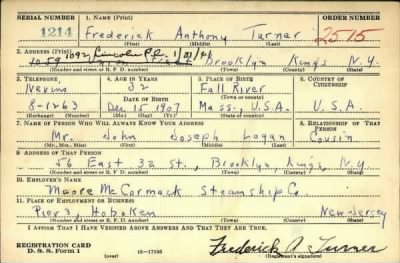 SERIAL NUMBER 1. NAME (Print) ORDER NUMBER
1214 Frederick Anthony Turner 2515
(First) (Middle) (Last)
2. ADDRESS (Print)
1092 Lincoln Pl. 1/31/41
1059 Union Street Brooklyn Kings N.Y.
(Number and street or R. F. D. number) (Town) (County) (State)
3. TELEPHONE 4. AGE IN YEARS 5. PLACE OF BIRTH 6. COUNTRY OF CITIZENSHIP
Nevins 32 Fall River
DATE OF BIRTH (Town)
8-1263 Dec 15 1907 Mass. U.S.A. U.S.A.
(Exchange) (Number) (Mo.) (Day) (Yr.) (State or country)
7. NAME OF PERSON WHO WILL ALWAYS KNOW YOUR ADDRESS 8. RELATIONSHIP OF THAT PERSON
Mr. John Joseph Logan Cousin
(Mr., Mrs., Miss) (First) (Middle) (Last)
9. ADDRESS OF THAT PERSON
56 East 32 St., Brooklyn, Kings, N.Y
(Number and street or R. F. D. number) (Town) (County) (State)
10. EMPLOYER'S NAME
Moore McCormack Steamship Co.
11. PLACE OF EMPLOYMENT OR BUSINESS
Pier 3, Hoboken New Jersey
(Number and street or R. F. D. number) (Town) (County) (State)
I AFFIRM THAT I HAVE VERIFIED ABOVE ANSWERS AND THAT THEY ARE TRUE.
REGISTRATION CARD
D. S. S. Form 1 (over) 16-17105 Frederick A. Turner
(Registrant's signature)